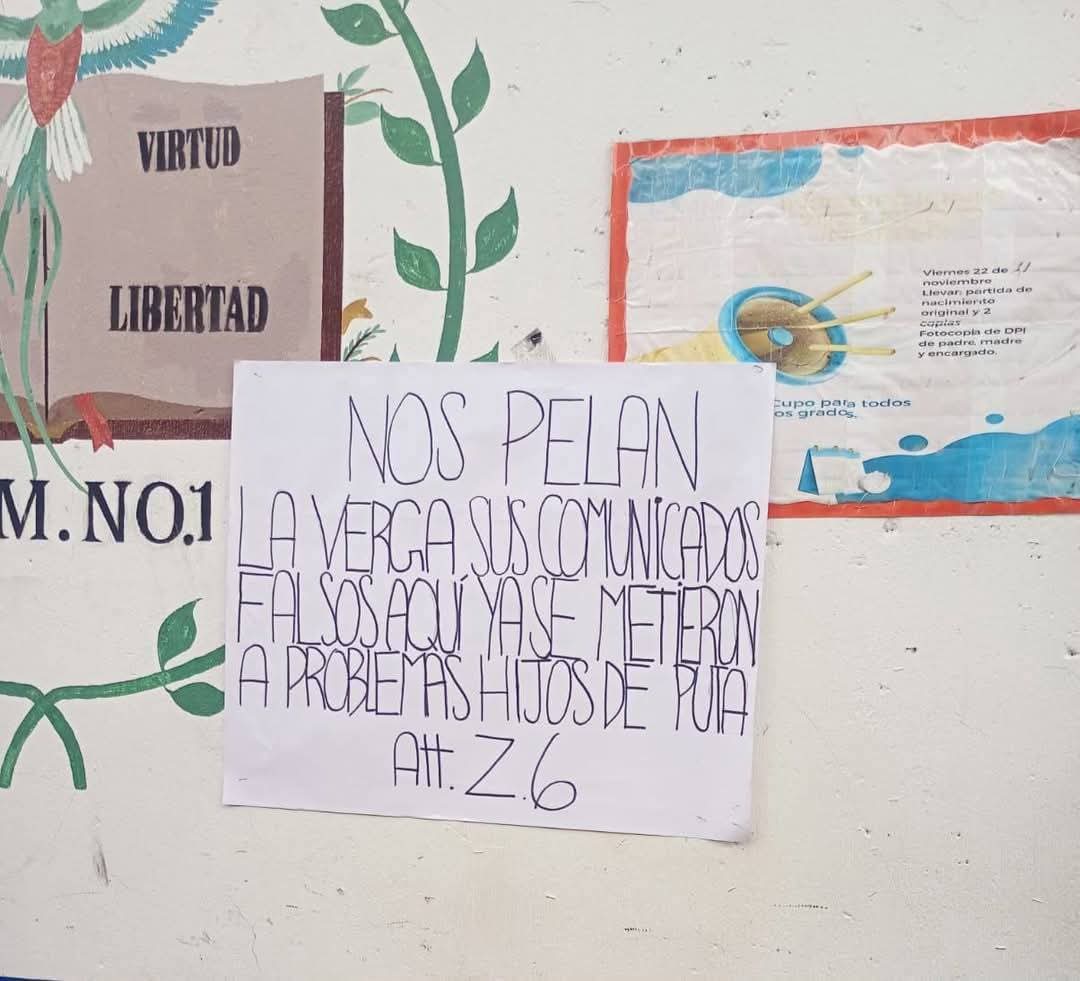 VIRTUD
LIBERTAD
M. NO.1
Viernes 22 de 11
noviembre
Llevar: partida de
nacimiento
original y 2
copias
Fotocopia de DPI
de padre, madre
y encargado.
Cupo para todos
os grados.
NOS PELAN
LA VERGA SUS COMUNICADOS
FALSOS AQUÍ YA SE METIERON
A PROBLEMAS HIJOS DE PUTA
Att. Z.6